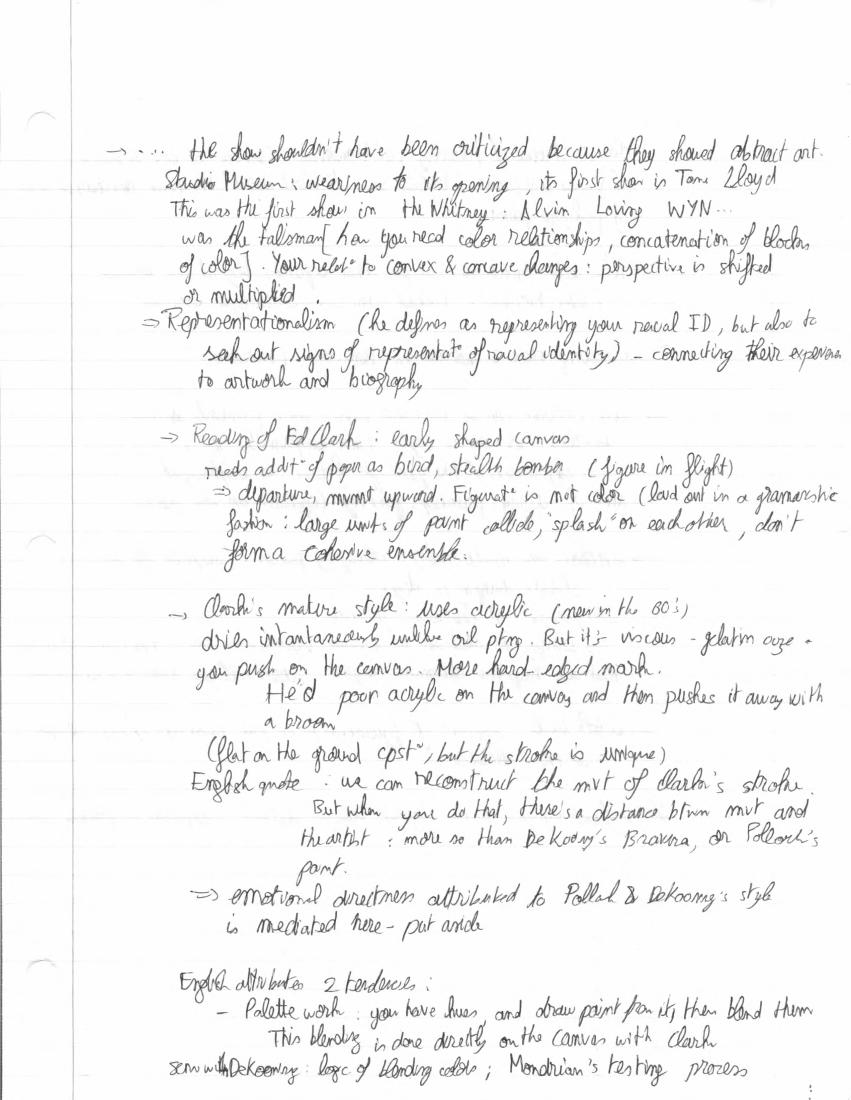 → ... the show shouldn't have been criticized because they showed abstract art.
Studio Museum : weariness to its opening, its first show is Tom Lloyd
This was the first show in the Whitney : Alvin Loving WYN...
was the talisman [ how you read color relationships, concatenation of blocks
of color ]. Your relat° to convex & concave changes : perspective is shifted
or multiplied.
⇒ Representationalism (he defines as representing your racial ID, but also to
seek out signs of representat° of racial identity) - connecting their experience
to artwork and biography
→ Reading of Ed Clark : early shaped canvas
reads addit° of paper as bird, stealth bomber (figure in flight)
⇒ departure, mvmt upward. Figurat° is not color (laid out in a
fashion : large units of paint collide, "splash" on each other, don't
form a cohesive ensemble.
→ Clark's mature style : uses acrylic (new in the 60's)
dries intantaneously unlike oil ptng. But it's viscous - gelatin ooze -
you push on the canvas. More hard-edged mark.
He'd poor acrylic on the canvas and then pushes it away with
a broom
(flat on the ground cpst°, but the stroke is unique)
English quote : we can reconstruct the mvt of Clark's stroke.
But when you do that, there's a distance btwn mvt and
the artist : more so than De Koony's Bravura, or Pollock's
paint.
⇒ emotional directness attributed to Pollak & DeKooning's style
is mediated here - put aside
English attributes 2 tendencies :
- Palette work : you have hues, and draw paint from it, then blend them
This blending is done directly on the canvas with Clark
seen with DeKooning : logic of blending colors ; Mondrian's testing process